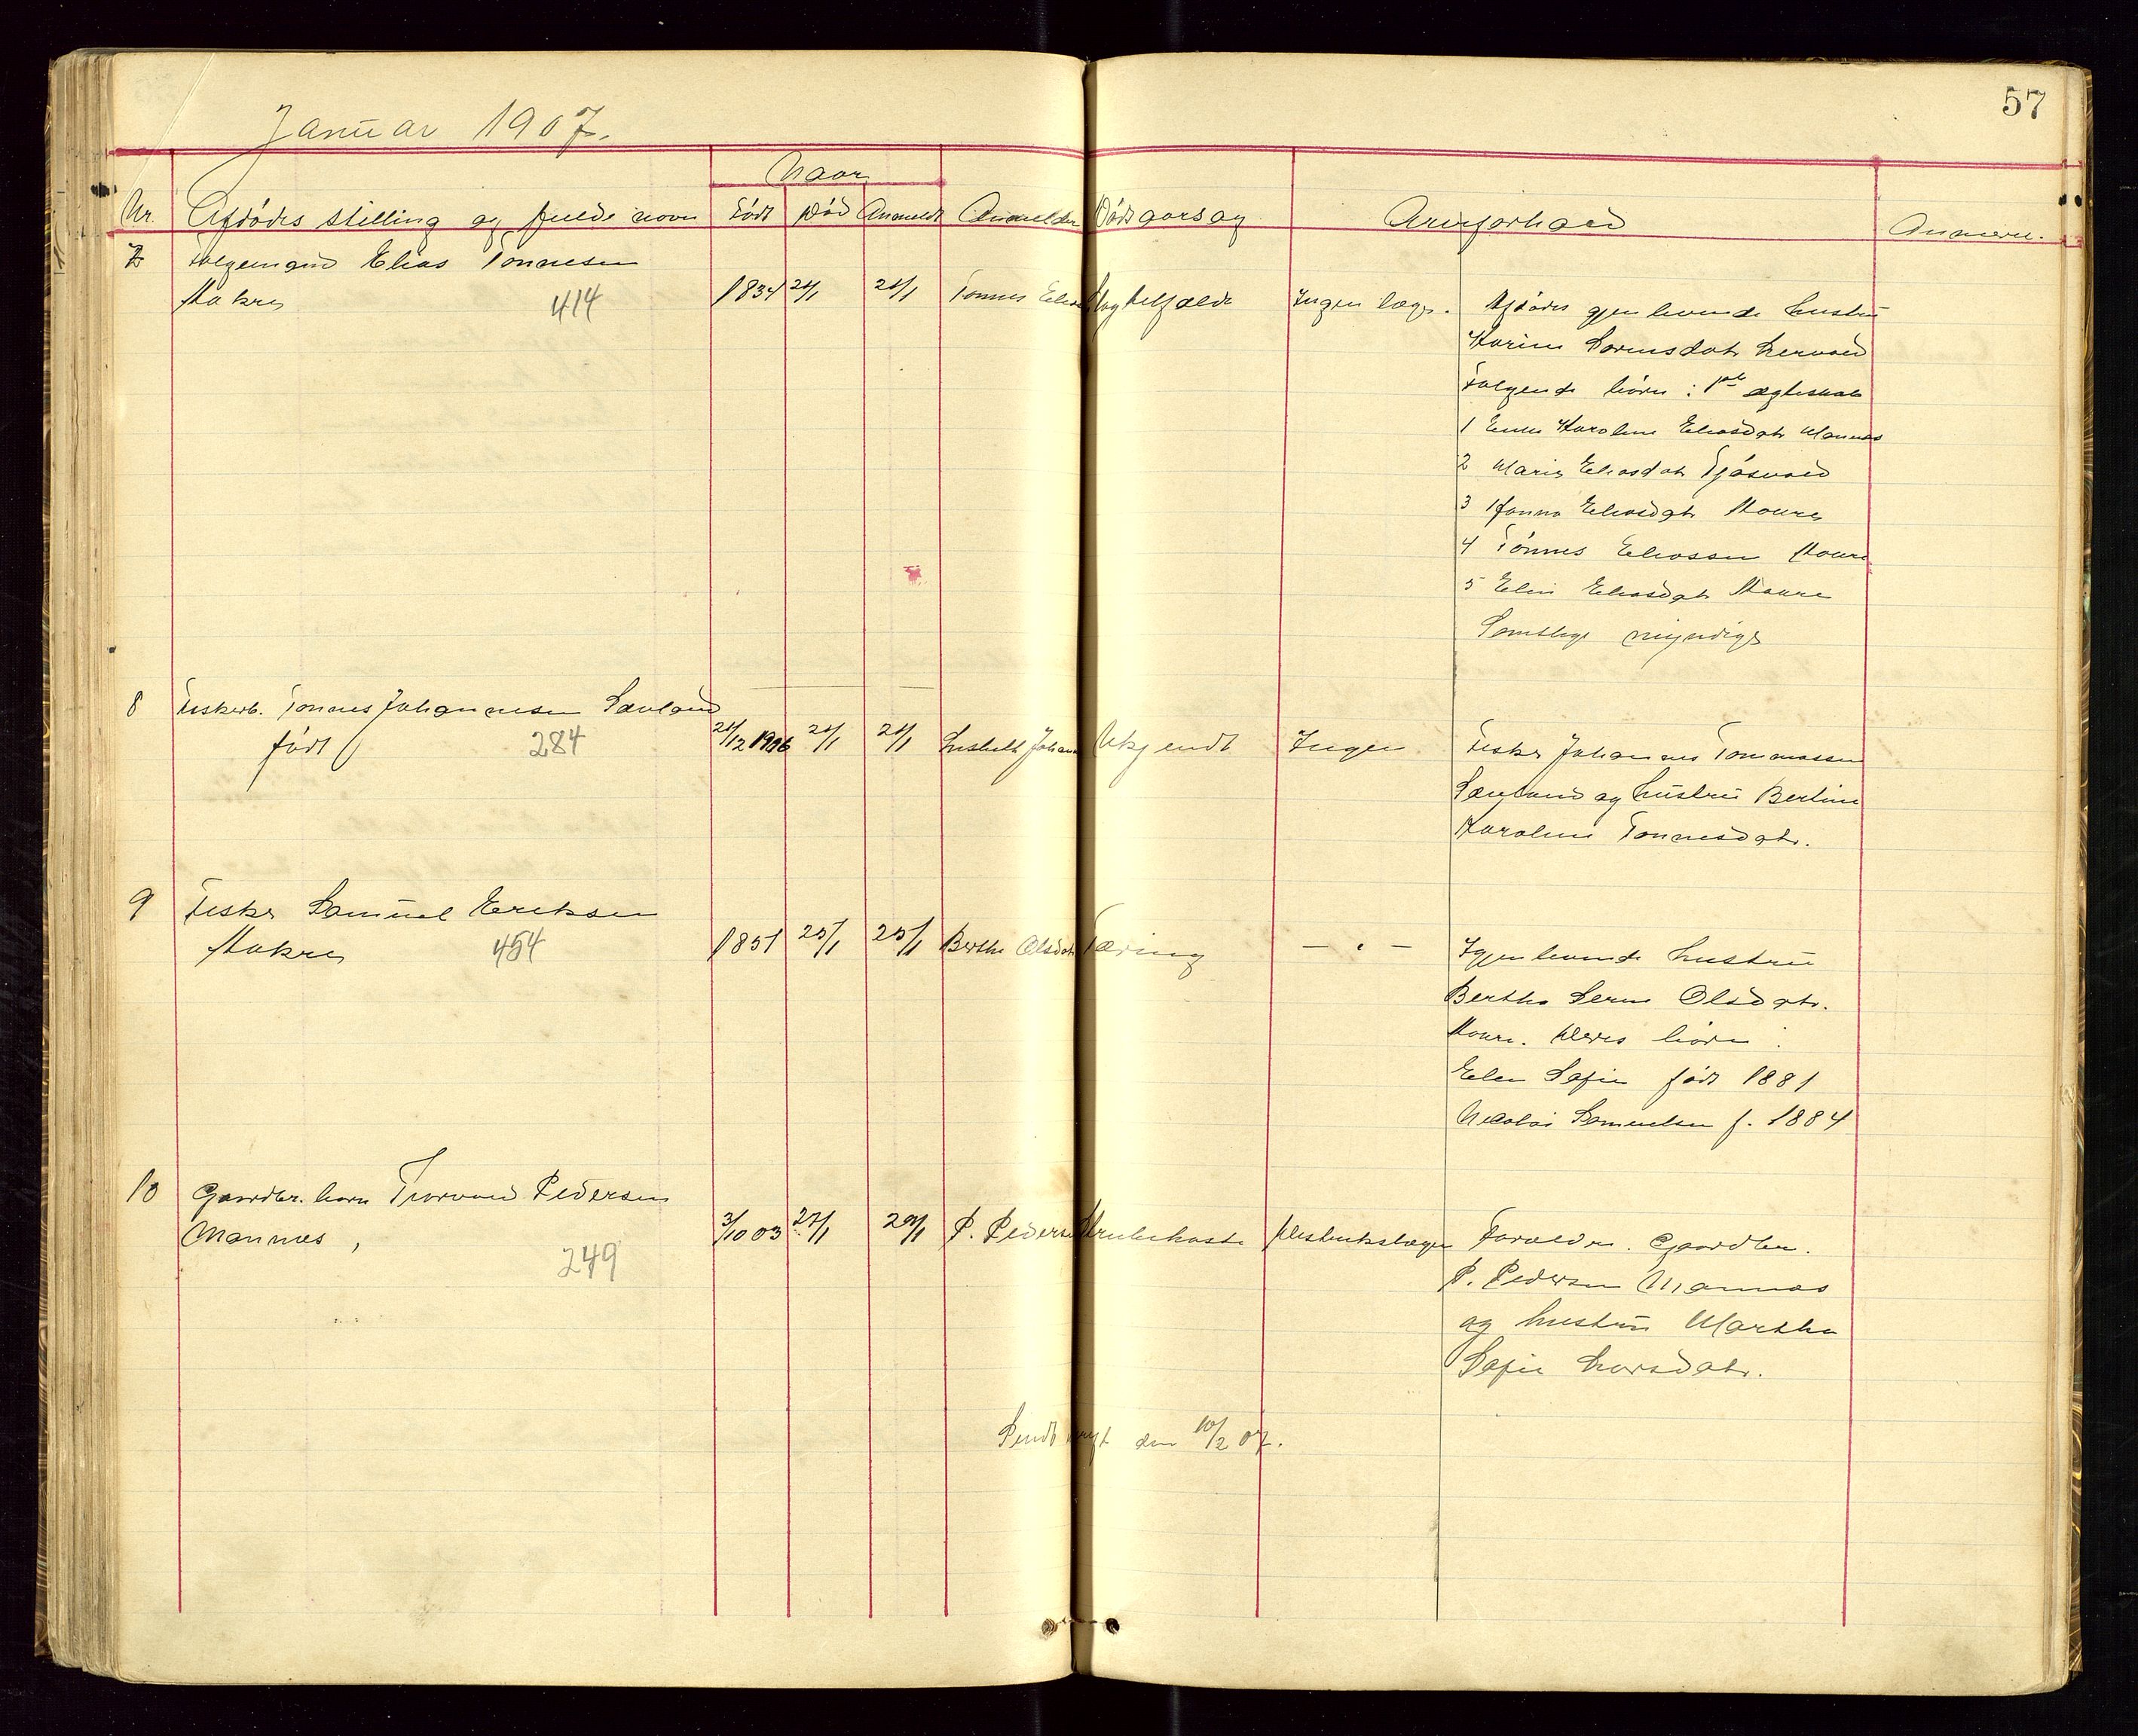 57
Januar 1907.
Naar
Nr. Afdødes stilling og fulde navn Født Død Anmeldt Anmelder Dødsaarsag Arveforhold Anmerk.
7 Folgemand Elias Tønnesen
Stokre 414 1834 24/1 24/1 Tønnes Elias Ingen læge. Afdødes gjenlevende hustru
Karine
følgende børn: 1ste ægteskab
1 Karoline Eliasdatr Mannes
2 Marie Eliasdatr Tjøsvold
3 Hanna Eliasdatr
4 Tønnes Eliassen
5 Elin Eliasdatr
Samtlige myndige
8 Fiskerb. Tønnes Johannesen Sævland
født 284 24/12 1906 24/1 24/1 Johann Ukjendt Ingen Fisker Johannes Tommassen
Sævland og hustru Berline
Karoline Tønnesdatr.
9 Fisker Samuel Eriksen
Stokre 454 1851 25/1 25/1 Berthe Olsdatr Tæring — " — Igjenlevende hustru
Bertha Serine Olsdatr.
Deres børn:
Elen Sofie født 1881
Nicolai Samuelsen f. 1884
10 Gaardbr. barn Torvald Pedersen
Mannes, 249 3/10 03 27/1 29/1 P. Pedersen Strubehoste Distriktslæge Forældre. Gaardbr.
P. Pedersen Mannes
og hustru Martha
Sofie Larsdatr.
Sendt den 10/2 07.